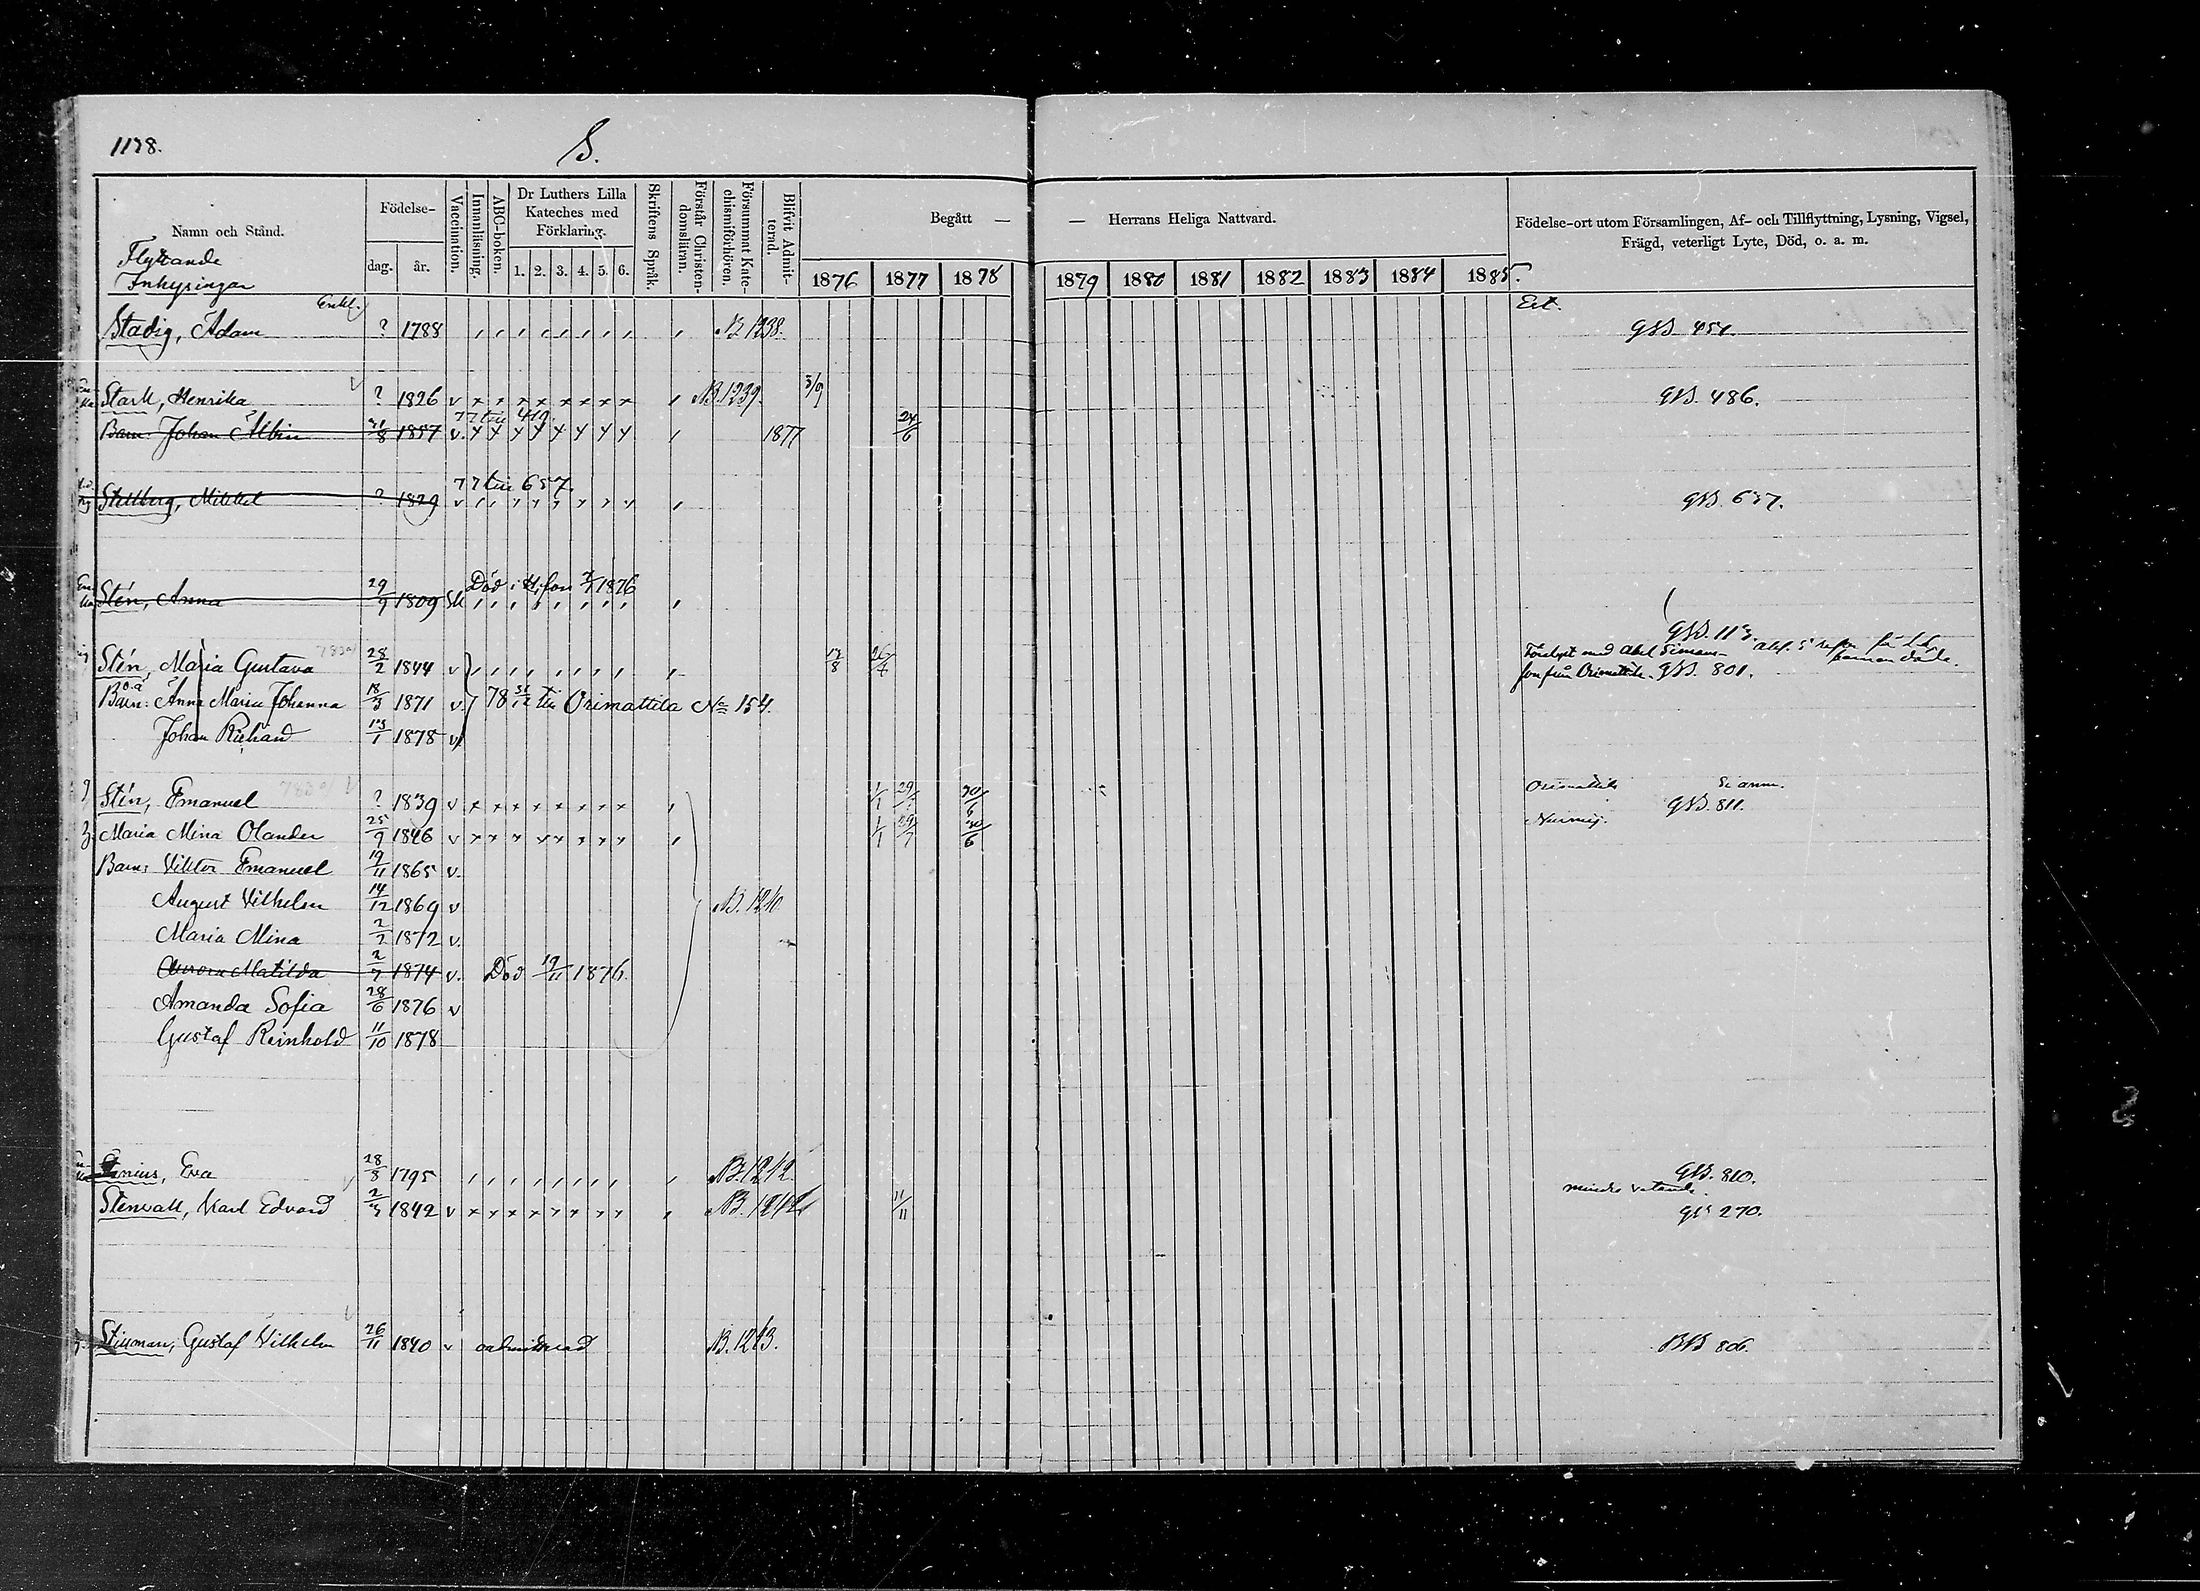 1178.
S.
Namn och Stånd.
Flyttande
Inhysingar
Födelse-
dag.
år.
Vaccination.
Innanläsning.
ABC-boken.
Dr Luthers Lilla
Kateches med
Förklaring.
1. 2. 3. 4. 5. 6.
Skriftens Språk.
Förstår Christen-
domsläran.
Försummat Kate-
chismiförhören.
Blifvit Admit-
terad.
Begått —
— Herrans Heliga Nattvard.
1876 1877 1878 1879 1880 1881 1882 1883 1884 1885.
Födelse-ort utom Församlingen, Af- och Tillflyttning, Lysning, Vigsel,
Frägd, veterligt Lyte, Död, o. a. m.
Enkl.
Stadig, Adam ? 1788 N.B. 1238. GKB 454.
Stark, Henrika ? 1826 v N.B. 1239. 3/9 GKB. 486.
77 till 419
Barn: Johan Albin 1857 v. 1877 24/6
77 till 657.
Stellberg, Mikkel ? 1829 v GKB. 657.
Död i H:fors 1876
Stén, Anna 29/9 1809 Sk
GKB. 113.
Stén, Maria Gustava 28/2 1844 v 13/8 26/7
GKB. 801.
o.ä.
Barn: Anna Maria Johanna 18/3 1871 v. 78 31/12 till Orimattila No 154.
Johan Richard 13/1 1878 v
Stén, Emanuel ? 1839 v 1/1 29/7 30/6 Orimattila
GKB. 811.
Maria Mina Olander 25/9 1846 v 1/1 29/7 30/6 Nurmij.
Barn: Viktor Emanuel 19/11 1865 v.
August Vilhelm 14/12 1869 v N.B. 1240
Maria Mina 2/2 1872 v.
Aurora Matilda 2/7 1874 v. Död 19/11 1876.
Amanda Sofia 28/6 1876 v
Gustaf Reinhold 11/10 1878
Stenius, Eva 28/8 1795 N.B. 1242. GKB. 810.
mindre vetande.
Stenvall, Karl Edvard 2/3 1842 v 11/11 GKB 270.
Stillman, Gustaf Vilhelm 26/11 1840 v oadmitterad N.B. 1243. BKB 806.